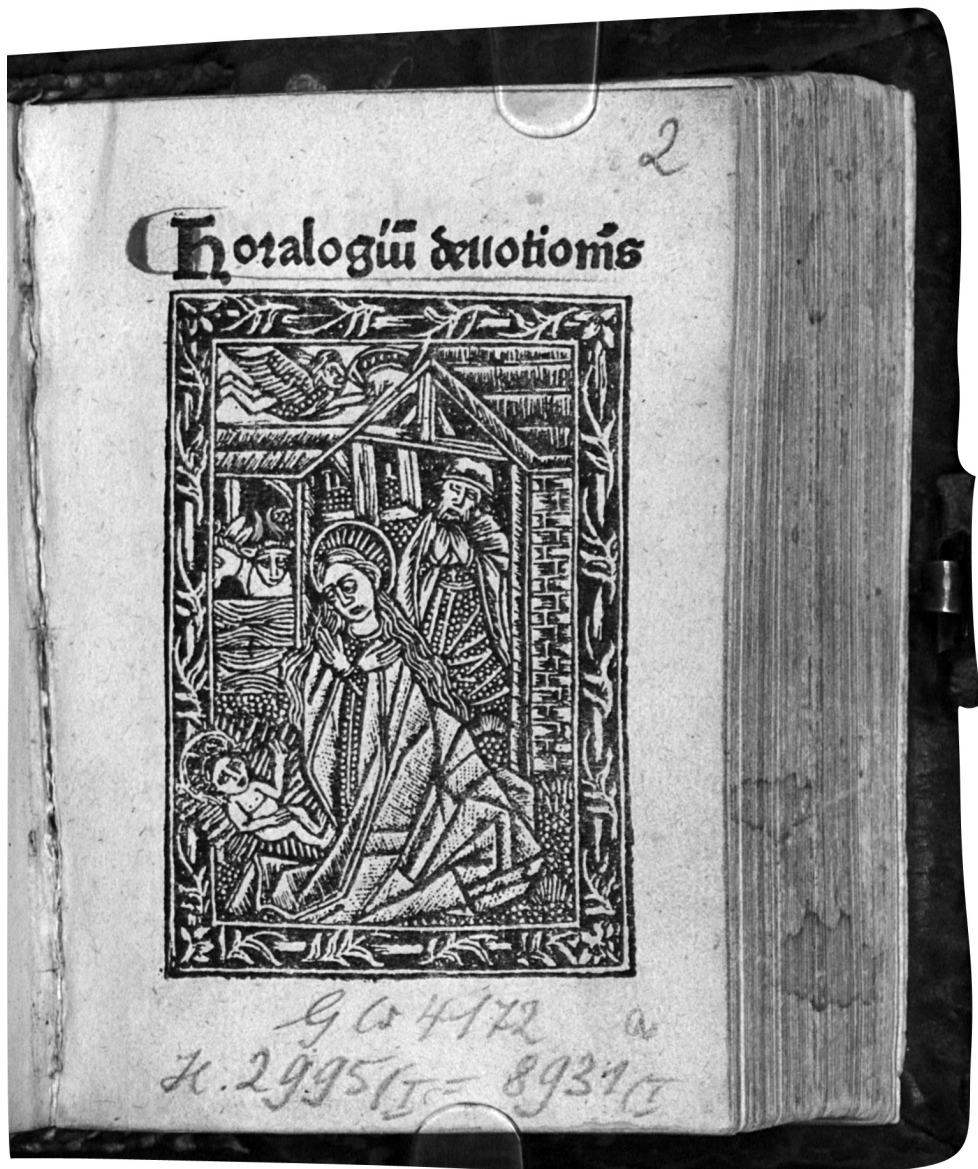 2
Horalogiū deuotiōis
G W 4172 a
H. 2995/I = 8931/I